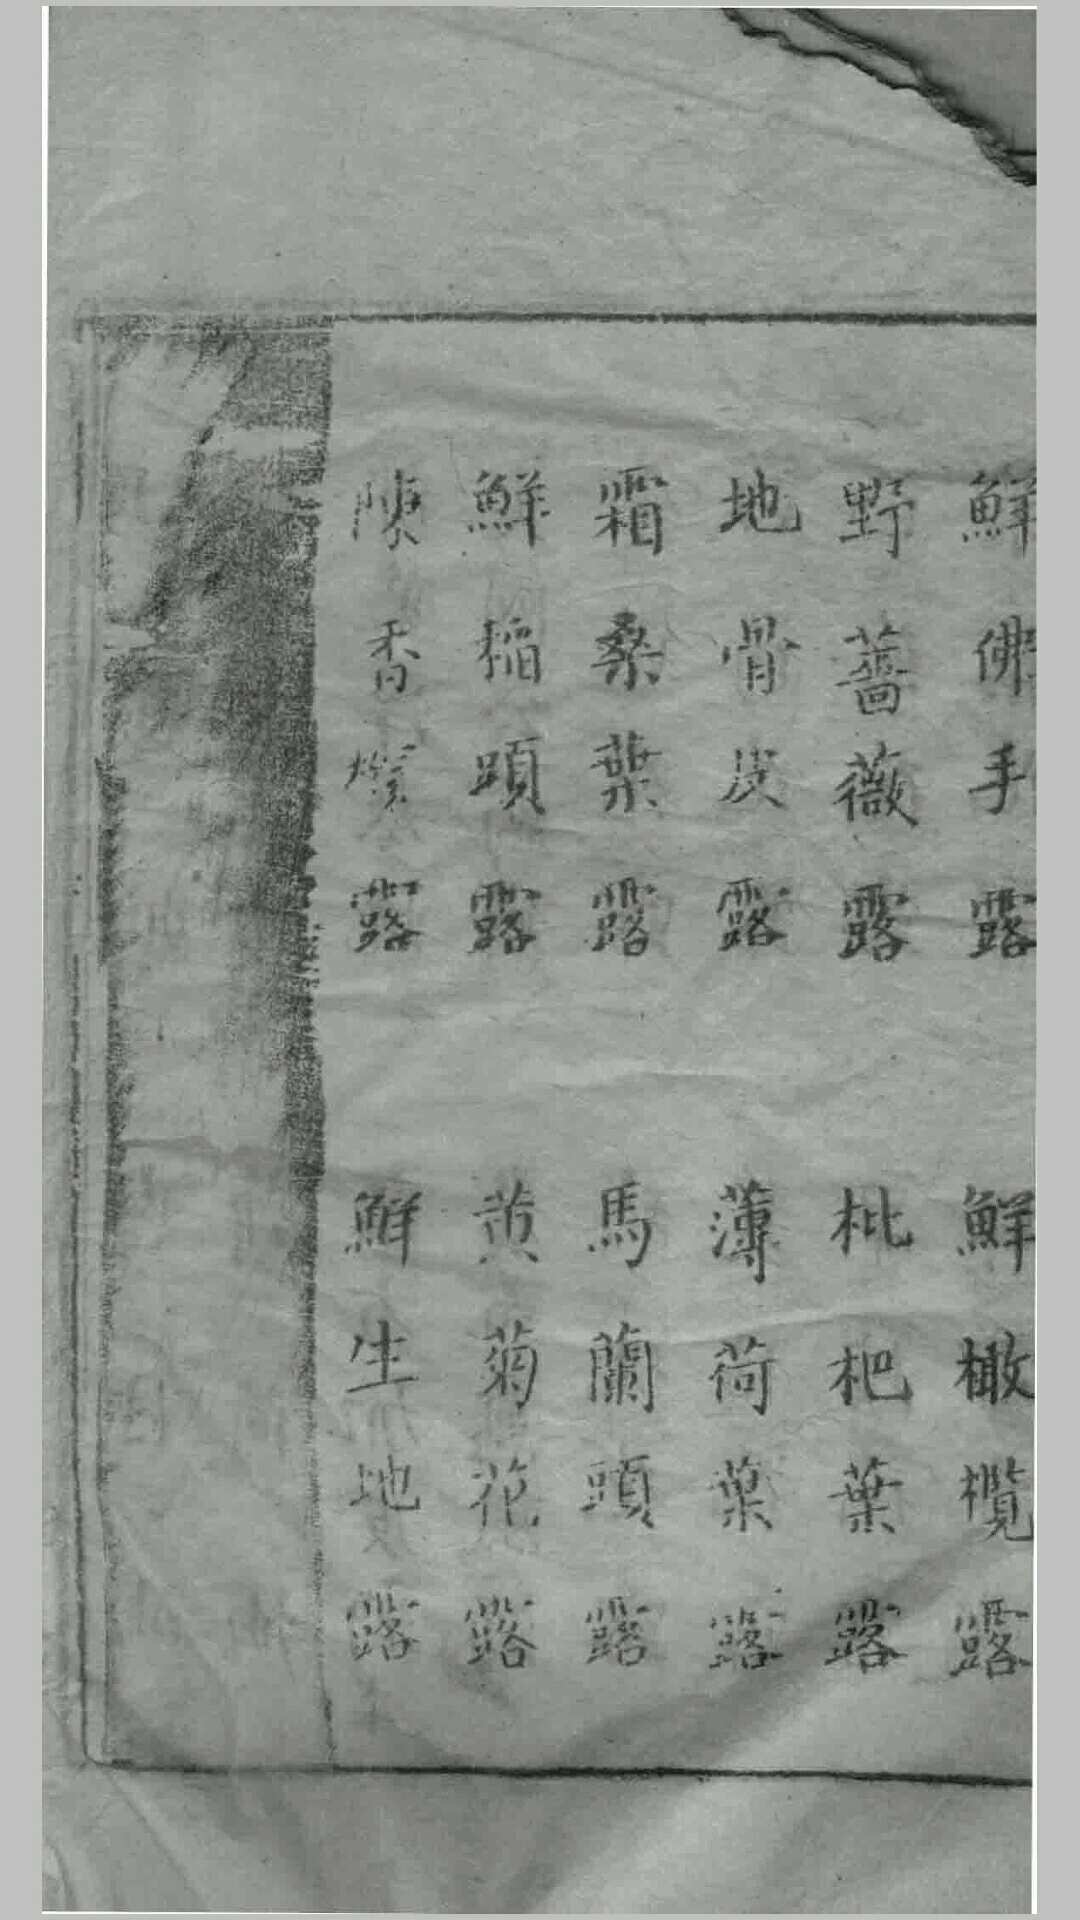 鮮佛手露
鮮橄欖露
野薔薇露
枇杷葉露
地骨皮露
薄荷葉露
霜桑葉露
馬蘭頭露
鮮稻頭露
黄菊花露
陳香櫞露
鮮生地露